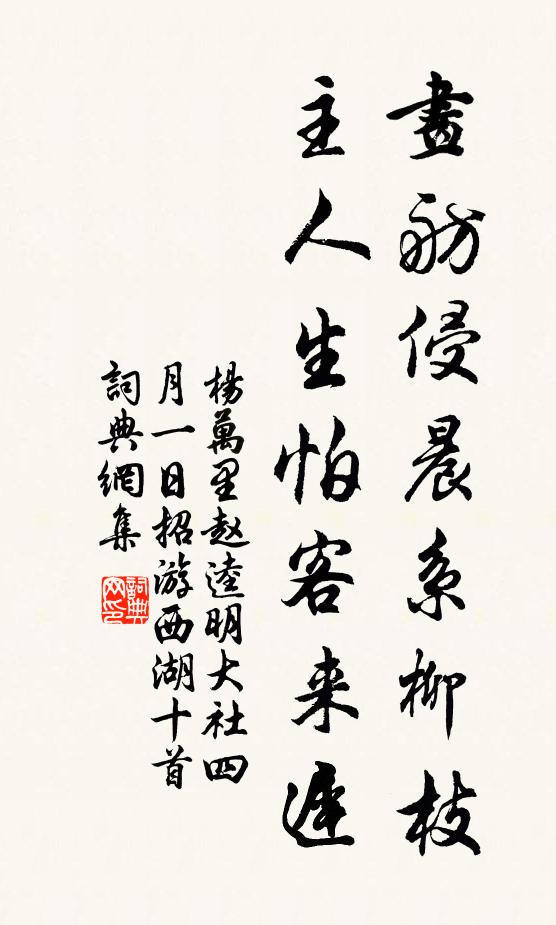 畫舫侵晨系柳枝
主人生怕客来遲
楊萬里赵逵明大社四
月一日招游西湖十首
詞典網集
詞典
网印